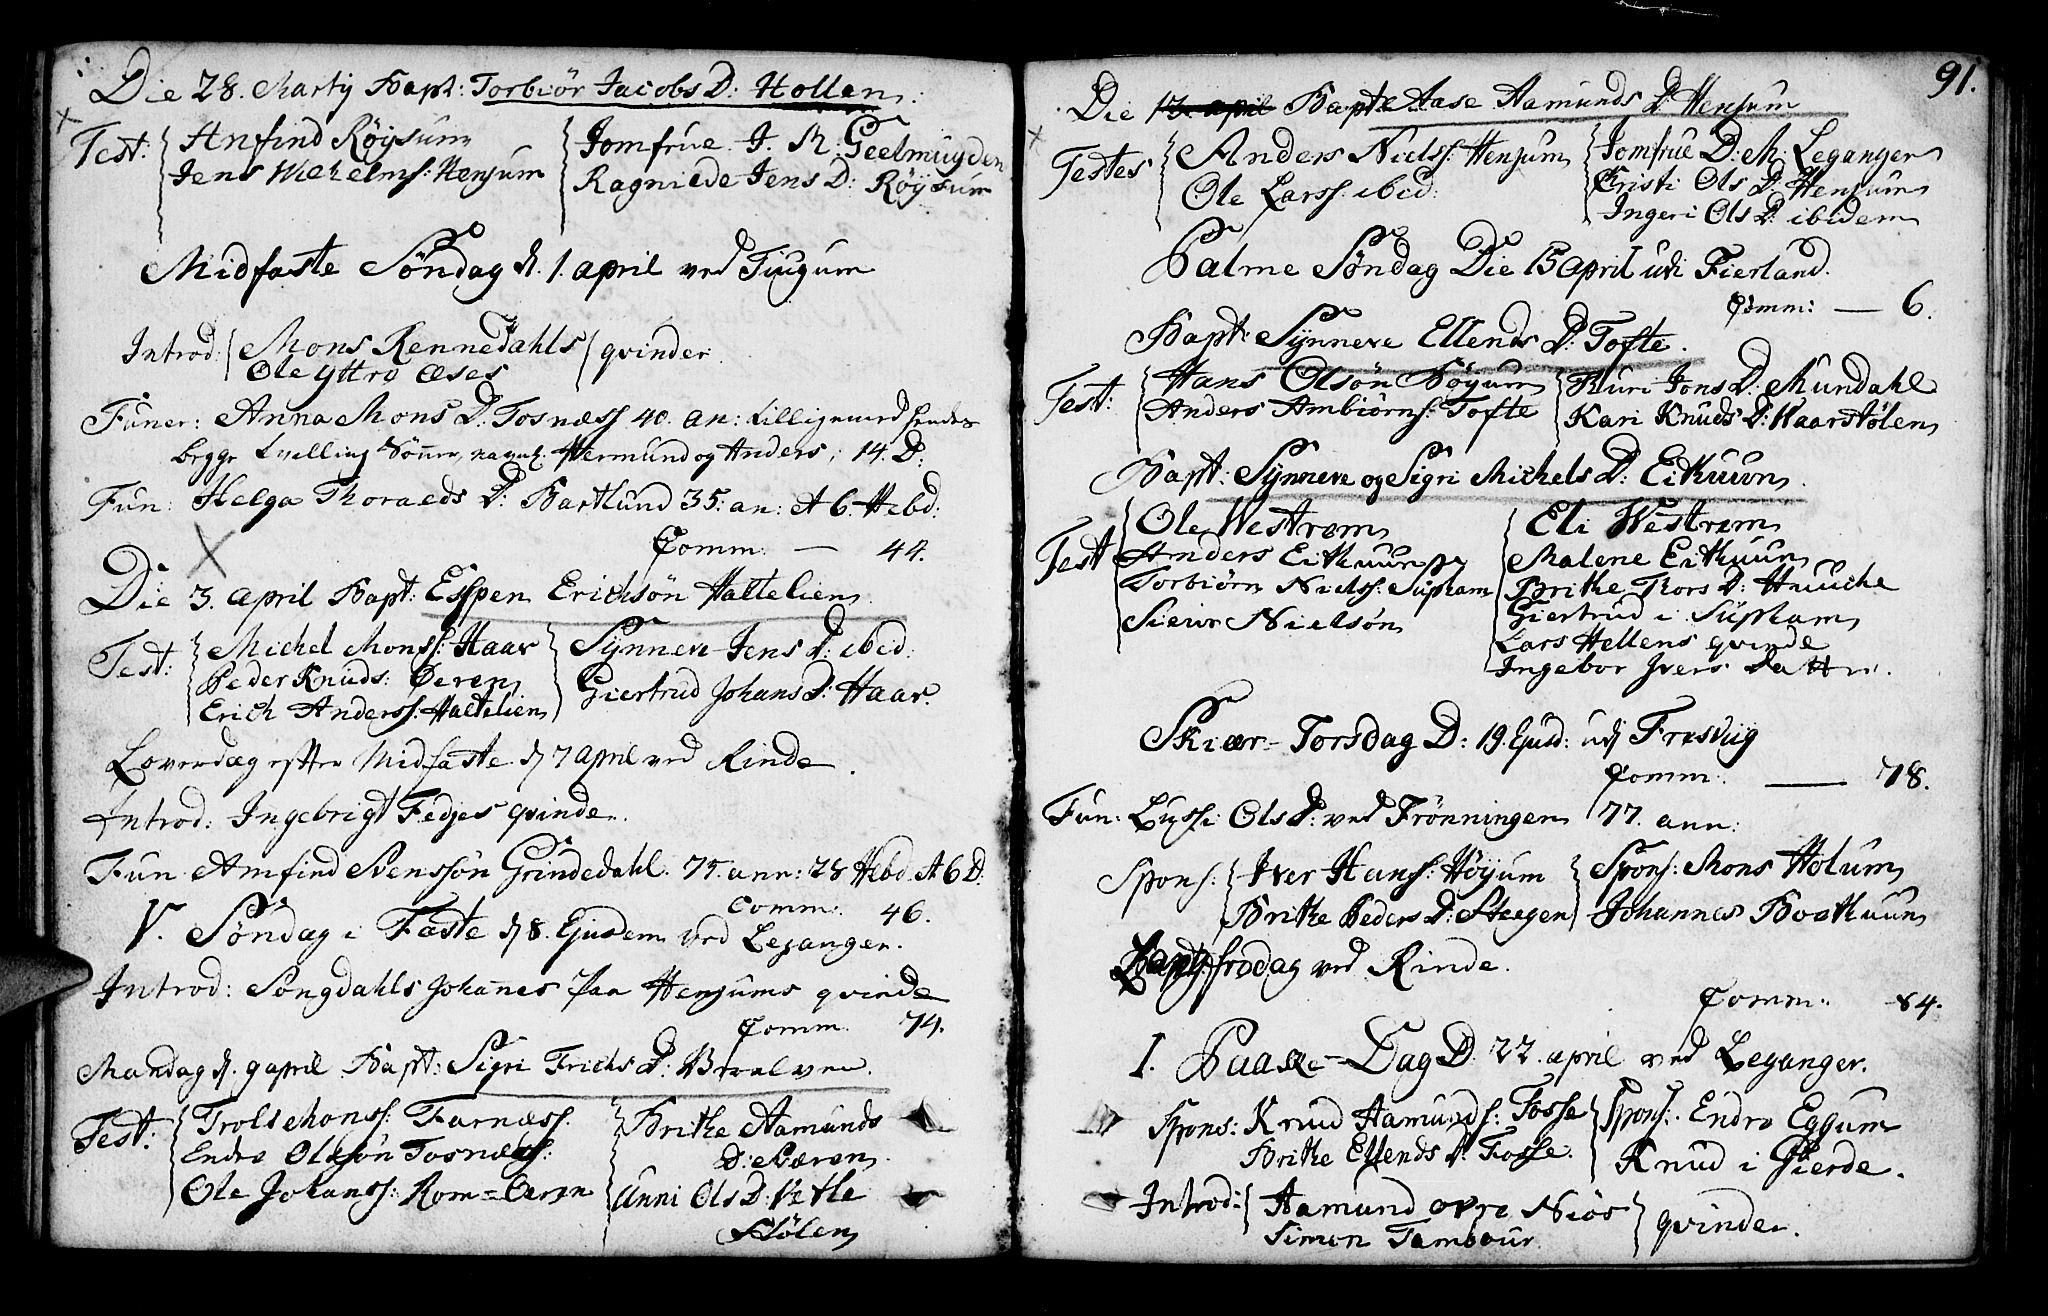 Die 28. Martij Bapt: Torbiør Jacobs D: Hollen.
Test: Anfind Røysum
Jens Wilhelms: Henjum
Jomfrue J. M. Geelmuyden
Ragniede Jens D: Røysum
Midfaste Søndag d. 1. april ved Tiugum
Introd: Mons Rennedahls
Ole yttre Æses
qvinder.
Funer: Anna Mons D. Tosnæss 40. an: tilligemed hendes
begge tvilling Sønner, navnl. Hermund og Anders, 14. D:
Fun: Helga Thoraeds D: Bartlund 35. an: et 6. Hebd:
Comm: — 44.
Die 3. april Bapt: Espen Erichsøn Haltelien.
Test: Michel Monss: Haar
Peder Knuds: Øeren
Erich Anderss: Haltelien
Synneve Jens D: ibid:
Giertrud Johans D: Haar.
Loverdag efter Midfaste d 7 april ved Rinde.
Introd: Ingebrigt Fedjes qvinde.
Fun Amfind Svenssøn Grindedahl. 75. ann: 28 Hebd. et 6 D.
Comm: 46.
V. Søndag i Faste d 8. Ejusdem ved Leganger.
Introd: Songdahls Johanes paa Henjums qvinde
Comm. 74.
Mandag d. 9 april Bapt: Sigri Erichs D:
Test: Trols Monss: Farnæss.
Endre Olssøn Tosnæss:
Ole Johanss: Rom=Øren
Brithe Aamunds
D: Bæren.
Anni Ols D: Vetle
Stølen
91.
Die 12. april Bapt: Aase Aamunds D: Henjum
Testes Anders Nielss: Henjum
Ole Larss: ibid:
Jomfrue D: M: Leganger
Kristi Ols D: Henjum
Ingeri Ols D: ibidem
Palme Søndag Die 15 april udi Fierland.
Comm: — 6.
Bapt: Synneve Ellends D: Tofte.
Test: Hans Olsøn Bøyum
Anders Ambiørns: Tofte
Guri Jons D: Mundahl
Kari Knuds D: Haarstølen
Bapt: Synneve og Sigri Michels D: Eithuun.
Test Ole Westrem
Anders Eithuun
Torbiørn Nielss: Supham
Sieur Nielsøn
Eli Westrem
Malene Eithuun
Brithe Thors D: Huuche
Giertrud i Supham
Lars Hellens qvinde
Ingebor Ivers Datter.
Skiær-Torsdag D: 19. Ejusd: udj Fresvig
Comm: — 78.
Fun: Lussi Ols D: ved Frønningen 77. ann:
Spons: Iver Hans: Høyum
Brithe Peders D: Steegen
Spons: Mons Holum
Johannes Boethuun
Langfredag ved Rinde.
Comm: 84.
I. Paaske-Dag D. 22. april ved Leganger.
Spons: Knud Aamunds: Fosse
Brithe Ellends D: Fosse.
Spons: Endre Eggum
Knud i Gierde.
Introd: Aamund øvre Niøs
Simon Tambour
qvinder.